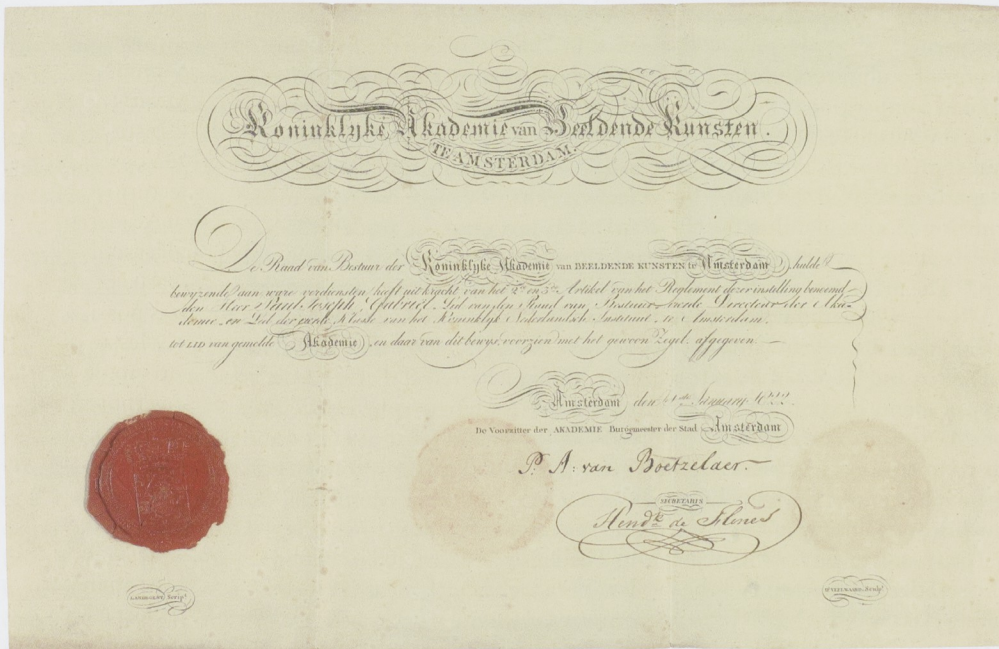 Koninklyke Akademie van Beeldende Kunsten.
TE AMSTERDAM.
De Raad van Bestuur der Koninklyke Akademie van BEELDENDE KUNSTEN te Amsterdam, hulde
bewyzende aan ware verdiensten heeft uit kracht van het 2de en 3de Artikel van het Reglement dezer instelling benoemd
den Heer Paul Joseph Gabriel, Lid van den Raad van Bestuur, Directeur der Aka-
demie, en Lid der Klasse van het Koninklyk Nederlandsch Instituut, te Amsterdam,
tot LID van gemelde Akademie, en daar van dit bewys, voorzien met het gewoon Zegel, afgegeven. —
Amsterdam den January
De Voorzitter der AKADEMIE Burgemeester der Stad Amsterdam
P. A: van Boetzelaer.
SECRETARIS
Hendk de Flines
Scrips!
Sculps!